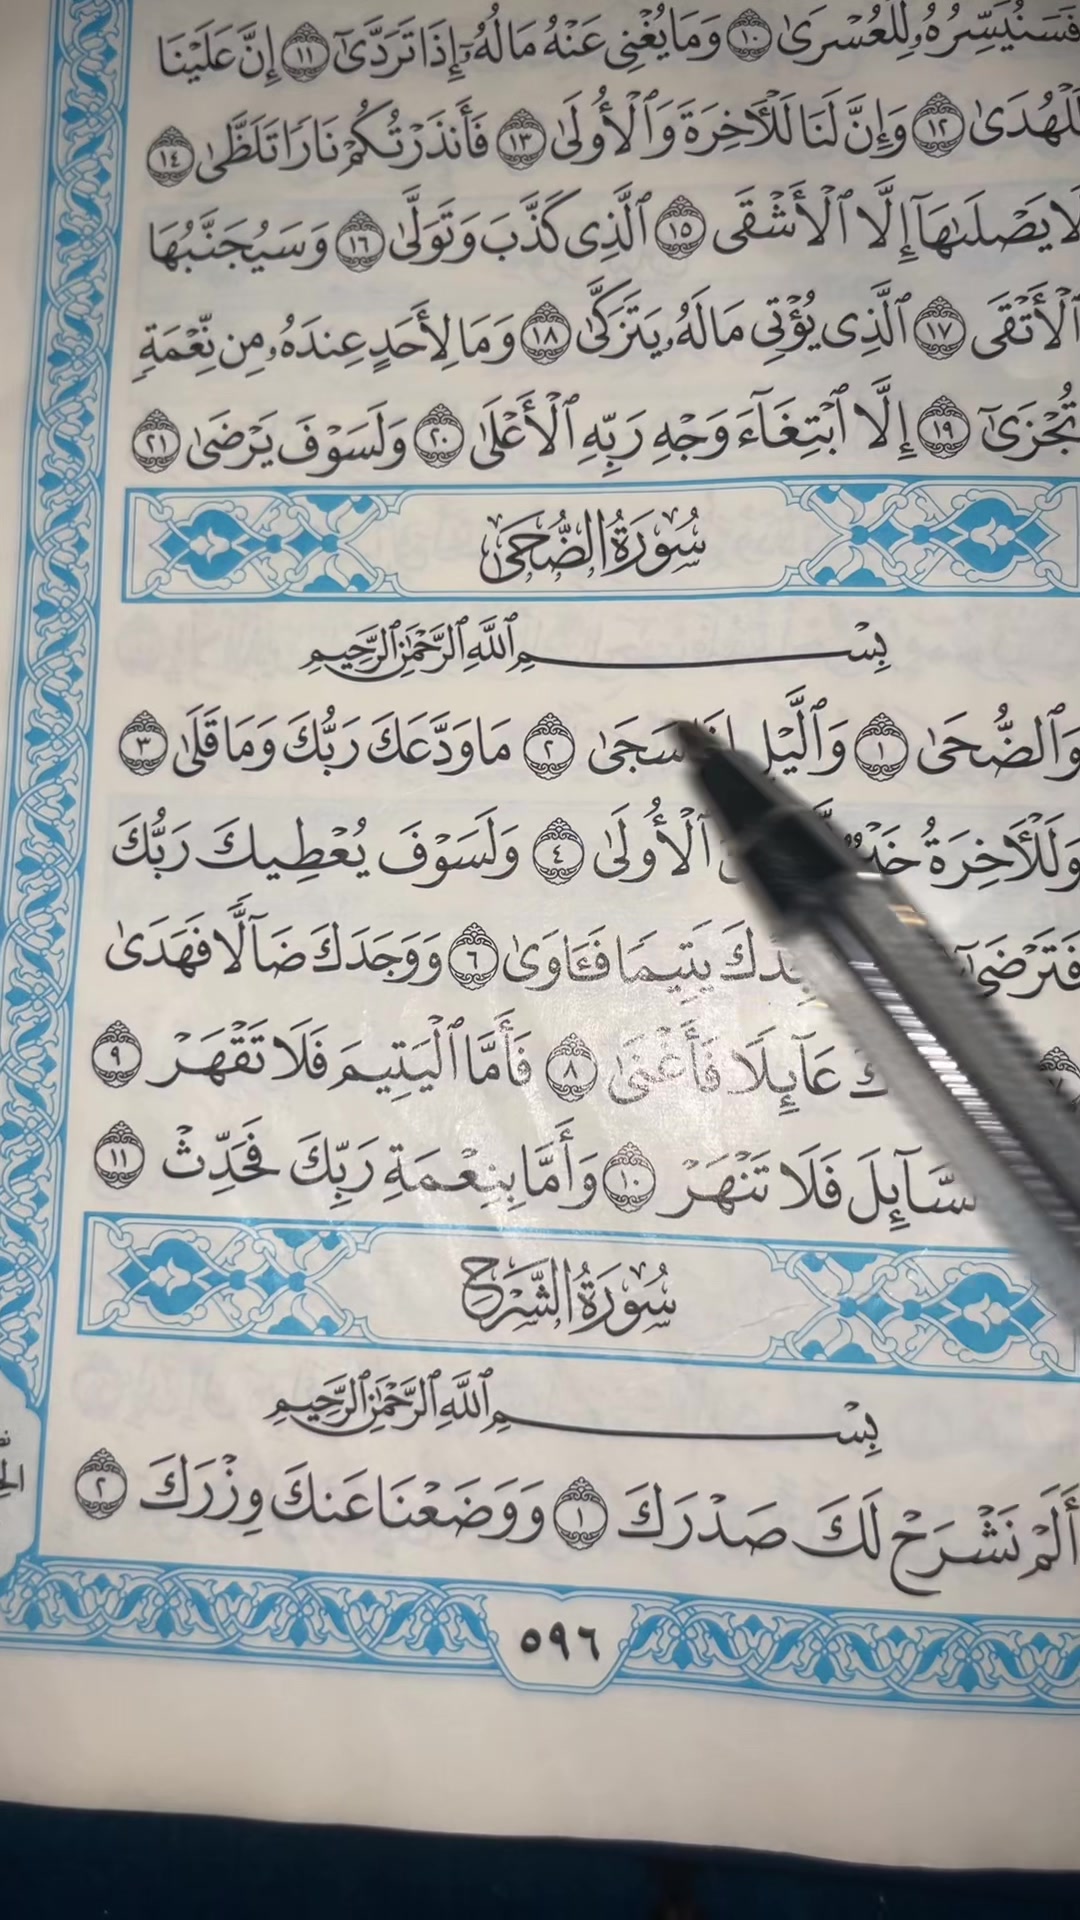 فَسَنُيَسِّرُهُۥ لِلْعُسْرَىٰ ١٠ وَمَا يُغْنِى عَنْهُ مَالُهُۥٓ إِذَا تَرَدَّىٰٓ ١١ إِنَّ عَلَيْنَا
لَلْهُدَىٰ ١٢ وَإِنَّ لَنَا لَلْـَٔاخِرَةَ وَٱلْأُولَىٰ ١٣ فَأَنذَرْتُكُمْ نَارًا تَلَظَّىٰ ١٤
لَا يَصْلَىٰهَآ إِلَّا ٱلْأَشْقَى ١٥ ٱلَّذِى كَذَّبَ وَتَوَلَّىٰ ١٦ وَسَيُجَنَّبُهَا
ٱلْأَتْقَى ١٧ ٱلَّذِى يُؤْتِى مَالَهُۥ يَتَزَكَّىٰ ١٨ وَمَا لِأَحَدٍ عِندَهُۥ مِن نِّعْمَةٍ
تُجْزَىٰٓ ١٩ إِلَّا ٱبْتِغَآءَ وَجْهِ رَبِّهِ ٱلْأَعْلَىٰ ٢٠ وَلَسَوْفَ يَرْضَىٰ ٢١
سُورَةُ الضُّحَىٰ
بِسْمِ ٱللَّهِ ٱلرَّحْمَٰنِ ٱلرَّحِيمِ
وَٱلضُّحَىٰ ١ وَٱلَّيْلِ سَجَىٰ ٢ مَا وَدَّعَكَ رَبُّكَ وَمَا قَلَىٰ ٣
وَلَلْـَٔاخِرَةُ ٱلْأُولَىٰ ٤ وَلَسَوْفَ يُعْطِيكَ رَبُّكَ
فَتَرْضَىٰٓ يَتِيمًا فَـَٔاوَىٰ ٦ وَوَجَدَكَ ضَآلًّا فَهَدَىٰ
٧ عَآئِلًا فَأَغْنَىٰ ٨ فَأَمَّا ٱلْيَتِيمَ فَلَا تَقْهَرْ ٩
فَلَا تَنْهَرْ ١٠ وَأَمَّا بِنِعْمَةِ رَبِّكَ فَحَدِّثْ ١١
سُورَةُ الشَّرْحِ
بِسْمِ ٱللَّهِ ٱلرَّحْمَٰنِ ٱلرَّحِيمِ
أَلَمْ نَشْرَحْ لَكَ صَدْرَكَ ١ وَوَضَعْنَا عَنكَ وِزْرَكَ ٢
٥٩٦